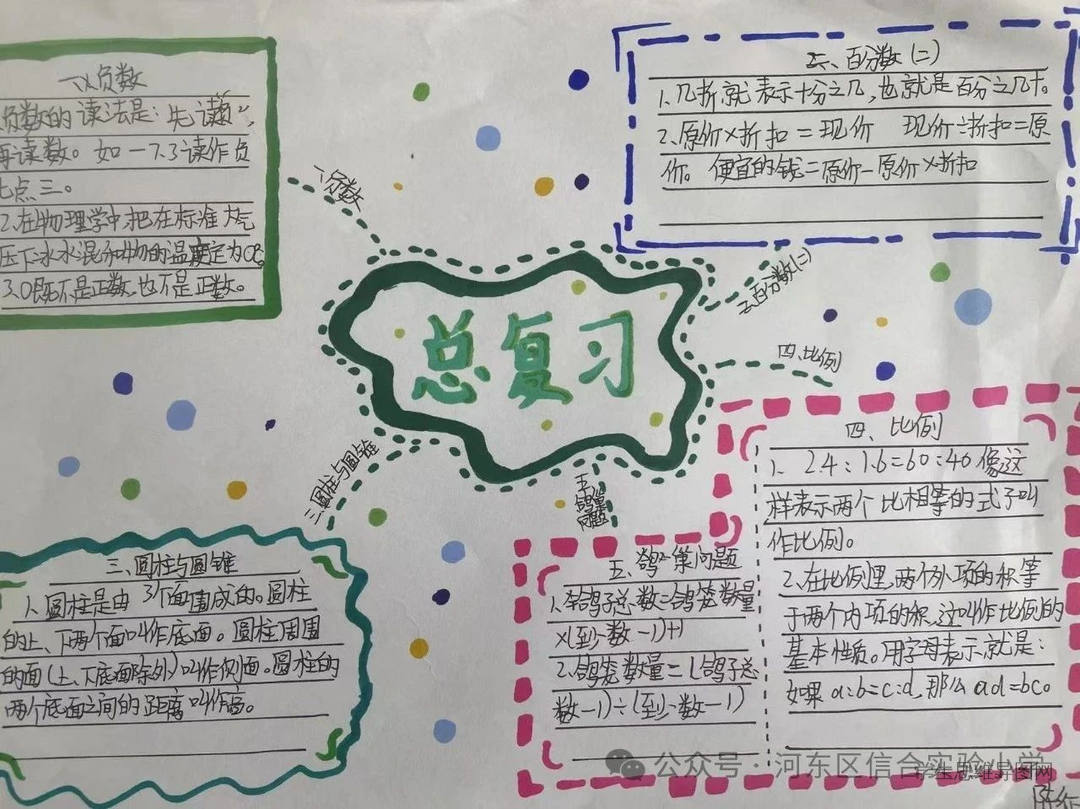 一、负数
负数的读法是：先读"负",
再读数。如－7.3读作负
七点三。
2.在物理学中把在标准大气
压下冰水混合物的温度定为0℃。
3.0既不是正数,也不是正数。
总复习
一、负数
二、百分数(二)
四、比例
三、圆柱与圆锥
五、鸽巢问题
二、百分数(二)
1.几折就表示十分之几,也就是百分之几十。
2.原价×折扣＝现价 现价÷折扣＝原
价。便宜的钱＝原价－原价×折扣
三、圆柱与圆锥
1、圆柱是由3个面围成的。圆柱
的上、下两个面叫作底面。圆柱周围
的面(上、下底面除外)叫作侧面。圆柱的
两个底面之间的距离叫作高。
四、比例
1、2.4：1.6＝60：40像这
样表示两个比相等的式子叫
作比例。
2、在比例里,两个外项的积等
于两个内项的积,这叫作比例的
基本性质。用字母表示就是：
如果a:b＝c:d,那么ad＝bc。
五、鸽巢问题
1.鸽子总数＝鸽笼数量
×(至少数－1)+1
2.鸽笼数量＝(鸽子总
数－1)÷(至少数－1)
公众号·河东区信合实验小学
学生思维导图网